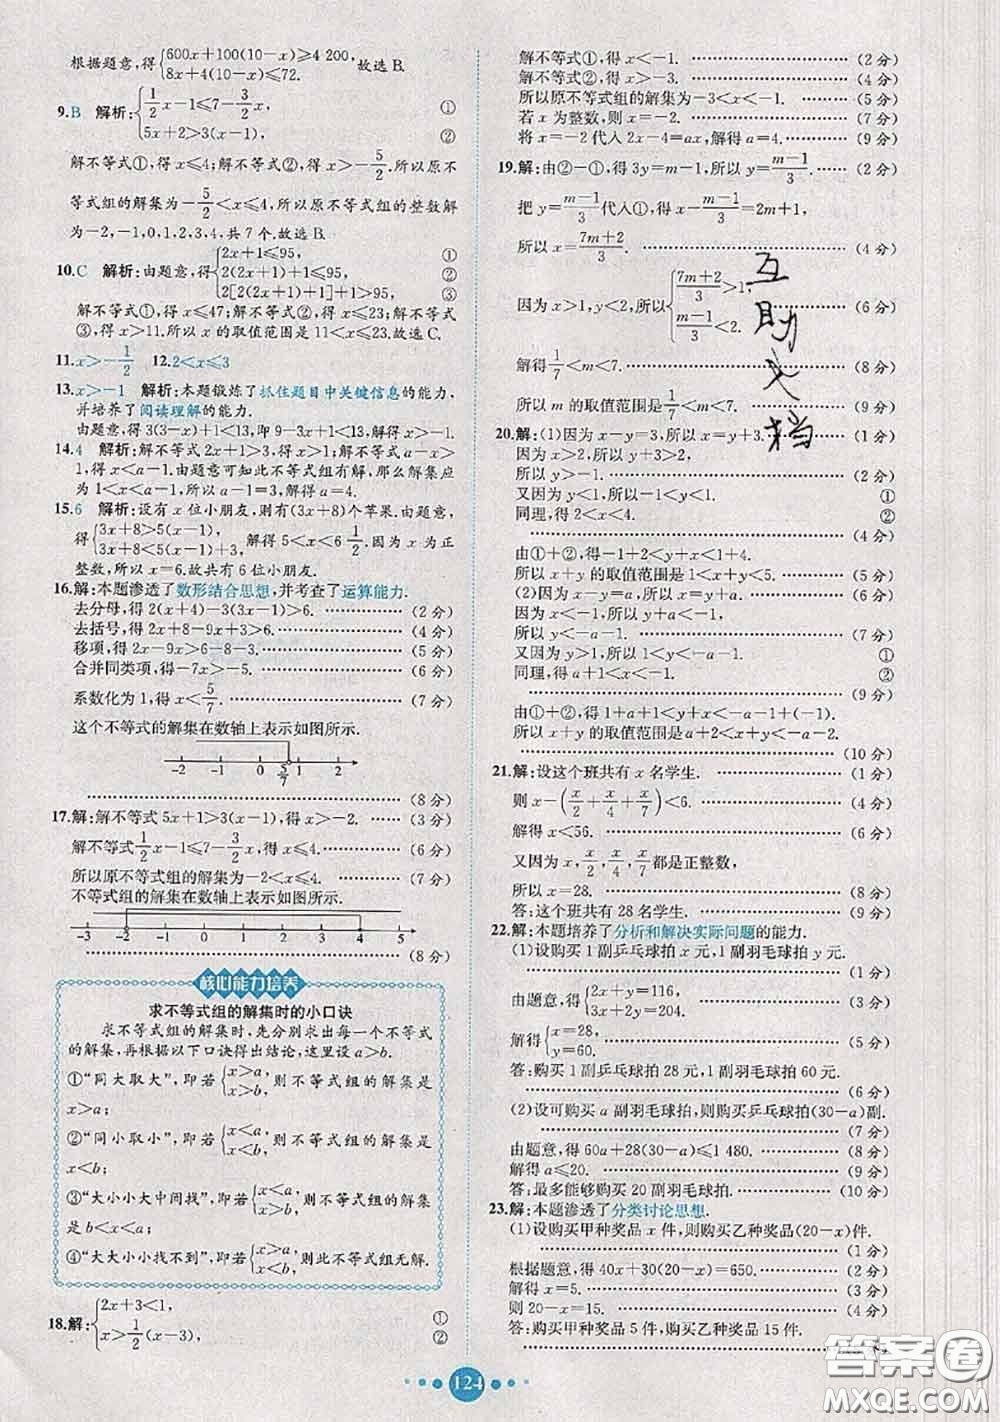 根据题意,得{600x+100(10-x)≥4 200, 8x+4(10-x)≤72. 故选B.
9.B 解析:{1/2x-1≤7-3/2x, ①
5x+2>3(x-1), ②
解不等式①,得x≤4;解不等式②,得x>-5/2.所以原不
等式组的解集为-5/2<x≤4,所以原不等式组的整数解
为-2,-1,0,1,2,3,4,共7个.故选B.
10.C 解析:由题意,得{2x+1≤95, ①
2(2x+1)+1≤95, ②
2[2(2x+1)+1]+1>95, ③
解不等式①,得x≤47;解不等式②,得x≤23;解不等式
③,得x>11.所以x的取值范围是11<x≤23.故选C.
11.x>-1/2 12.2<x≤3
13.x>-1 解析:本题锻炼了抓住题目中关键信息的能力,
并培养了阅读理解的能力.
由题意,得3(3-x)+1<13,即9-3x+1<13,解得x>-1.
14.4 解析:解不等式2x+1>3,得x>1;解不等式a-x>
1,得x<a-1.由题意可知此不等式组有解,那么解集应
为1<x<a-1.所以a-1=3,解得a=4.
15.6 解析:设有x位小朋友,则有(3x+8)个苹果.由题意,
得{3x+8>5(x-1), 3x+8<5(x-1)+3, 解得5<x<6 1/2.因为x为正
整数,所以x=6.故共有6位小朋友.
16.解:本题渗透了数形结合思想,并考查了运算能力.
去分母,得2(x+4)-3(3x-1)>6. (2分)
去括号,得2x+8-9x+3>6. (4分)
移项,得2x-9x>6-8-3. (5分)
合并同类项,得-7x>-5. (6分)
系数化为1,得x<5/7. (7分)
这个不等式的解集在数轴上表示如图所示.
-2 -1 0 5/7 1 2
(8分)
17.解:解不等式5x+1>3(x-1),得x>-2. (3分)
解不等式1/2x-1≤7-3/2x,得x≤4. (6分)
所以原不等式组的解集为-2<x≤4. (7分)
不等式组的解集在数轴上表示如图所示.
-3 -2 -1 0 1 2 3 4 5
(8分)
核心能力培养
求不等式组的解集时的小口诀
求不等式组的解集时,先分别求出每一个不等式
的解集,再根据以下口诀得出结论,这里设a>b.
①“同大取大”,即若{x>a, x>b, 则不等式组的解集是
x>a;
②“同小取小”,即若{x<a, x<b, 则不等式组的解集是
x<b;
③“大小小大中间找”,即若{x<a, x>b, 则不等式组的解集
是b<x<a;
④“大大小小找不到”,即若{x>a, x<b, 则此不等式组无解.
18.解:{2x+3<1, ①
x>1/2(x-3), ②
解不等式①,得x<-1. (2分)
解不等式②,得x>-3. (4分)
所以原不等式组的解集为-3<x<-1. (5分)
若x为整数,则x=-2. (7分)
将x=-2代入2x-4=ax,解得a=4. (9分)
19.解:由②-①,得3y=m-1,所以y=m-1/3. (2分)
把y=m-1/3代入①,得x-m-1/3=2m+1,
所以x=7m+2/3. (4分)
因为x>1,y<2,所以{7m+2/3>1, m-1/3<2. (6分)
解得1/7<m<7. (8分)
所以m的取值范围是1/7<m<7. (9分)
互助文档
20.解:(1)因为x-y=3,所以x=y+3. (1分)
因为x>2,所以y+3>2,
所以y>-1. (2分)
又因为y<1,所以-1<y<1. ①
同理,得2<x<4. ②
(4分)
由①+②,得-1+2<y+x<1+4,
所以x+y的取值范围是1<x+y<5. (5分)
(2)因为x-y=a,所以x=y+a. (6分)
因为x<-1,所以y+a<-1,
所以y<-a-1. (7分)
又因为y>1,所以1<y<-a-1. ①
同理,得a+1<x<-1. ②
(9分)
由①+②,得1+a+1<y+x<-a-1+(-1).
所以x+y的取值范围是a+2<x+y<-a-2.
(10分)
21.解:设这个班共有x名学生. (1分)
则x-(x/2+x/4+x/7)<6. (4分)
解得x<56. (6分)
又因为x,x/2,x/4,x/7都是正整数,
所以x=28. (8分)
答:这个班共有28名学生. (9分)
22.解:本题培养了分析和解决实际问题的能力.
(1)设购买1副乒乓球拍x元,1副羽毛球拍y元.
(1分)
由题意,得{2x+y=116, 3x+2y=204. (3分)
解得{x=28, y=60. (5分)
答:购买1副乒乓球拍28元,1副羽毛球拍60元.
(6分)
(2)设可购买a副羽毛球拍,则购买乒乓球拍(30-a)副.
(7分)
由题意,得60a+28(30-a)≤1 480. (8分)
解得a≤20. (9分)
答:最多能够购买20副羽毛球拍. (10分)
23.解:本题渗透了分类讨论思想.
(1)设购买甲种奖品x件,则购买乙种奖品(20-x)件.
(1分)
根据题意,得40x+30(20-x)=650. (2分)
解得x=5. (3分)
则20-x=15. (4分)
答:购买甲种奖品5件,购买乙种奖品15件.
124
答案圈
MXQE.COM